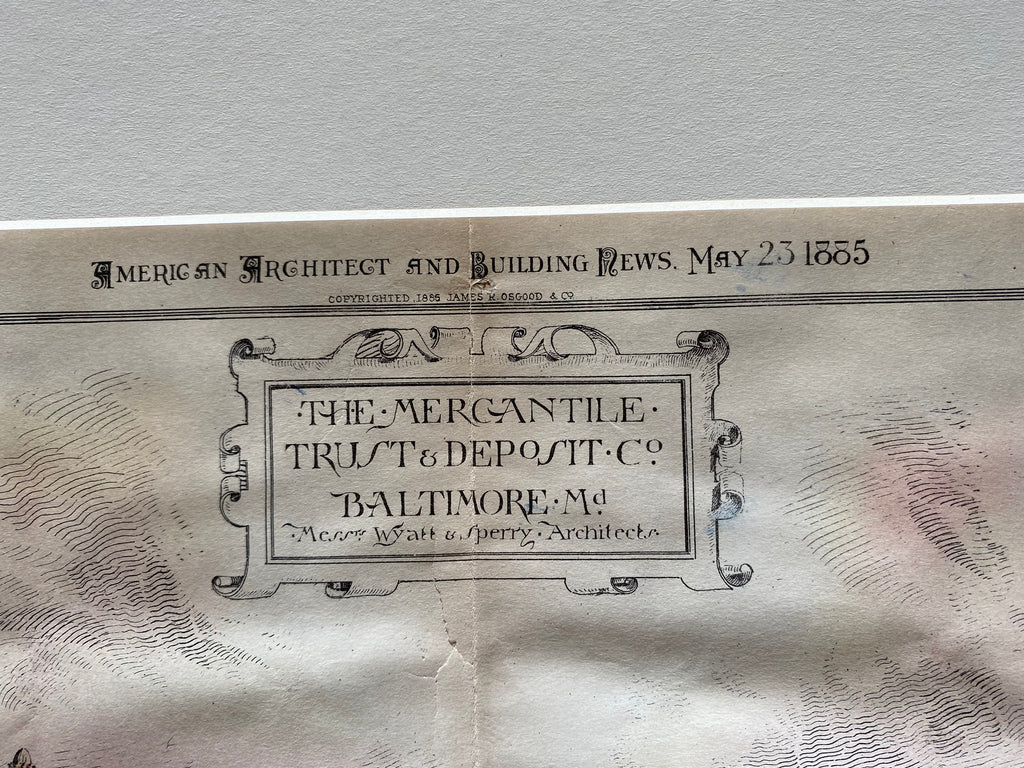 American Architect and Building News. May 23 1885
COPYRIGHTED 1885 JAMES R. OSGOOD & Co
·THE·MERCANTILE·
TRUST & DEPOSIT·Co
BALTIMORE·Md
·Messrs Wyatt & Sperry·Architects·